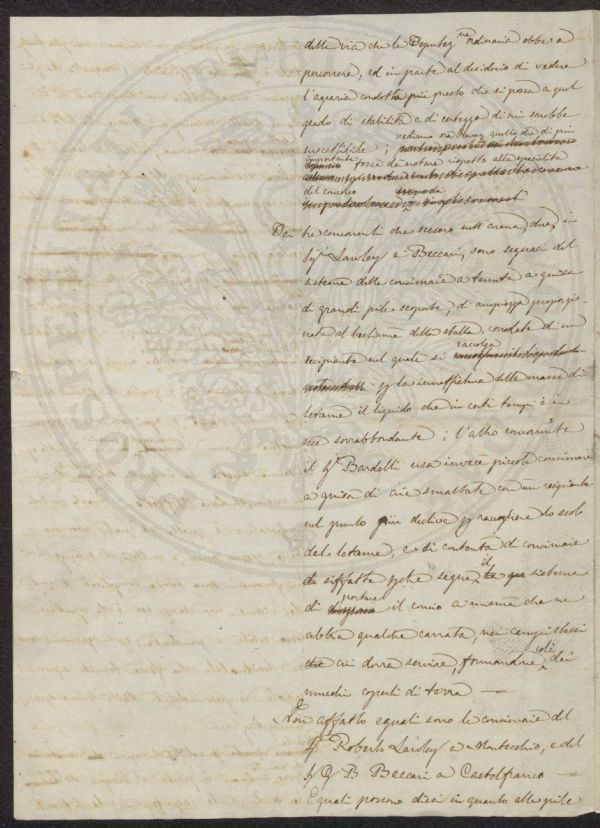 della via che le Deputazne ordinaria ebbe a
percorrere, ed in parte al desiderio di vedere
l'agraria condotta più presto che si possa a quel
grado di stabilità e di certezza di cui sarebbe
suscettibile; vediamo ora quello che di più
importante forse da notare rispetto alla specialità
del concio
Dei tre concorrenti che scesero nell'arena, due, i
Sigri Lawley e Beccari, sono seguaci del
sistema delle concimaie a tenuta a guisa
di grandi pile scoperte, di ampiezza proporzio
nata al bestiame della stalla, corredate di un
recipiente nel quale si raccolga
p la innaffiatura della massa di
letame il liquido che in certi tempi è in
esse sovrabbondante; l'altro concorrente
il Sr Bardelli usa invece piccole concimaie
a guisa di aie smaltate con un recipiente
nel punto più declive p raccogliere lo scolo
del letame, e si contenta di concimaie
siffatte pche segue il sistema
di portare il concio a misura che ne
abbia qualche carrata, nei campi stessi
cui dovrà servire, formandone colà dei
mucchi coperti di terra —
Non affatto eguali sono le concimaie del
Sr Roberto Lawley a Montecchio, e del
Sr G B Beccari a Castelfranco —
Eguali possono dirsi in quanto alle pile